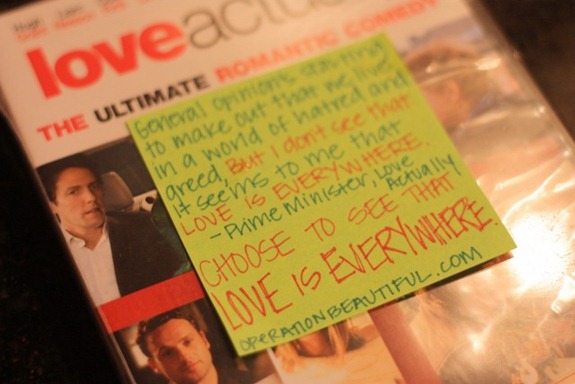 love actua
THE ULTIMATE ROMANTIC COMEDY
General opinion's starting
to make out that we live
in a world of hatred and
greed, But I don't see that
it seems to me that
LOVE IS EVERYWHERE.
-Prime Minister, Love
Actually
CHOOSE TO SEE THAT
LOVE IS EVERYWHERE.
OPERATIONBEAUTIFUL.COM